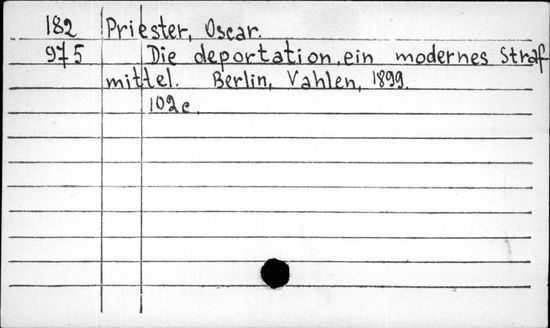 182 Priester, Oscar.
975 Die deportation, ein modernes Straf-
mittel. Berlin, Vahlen, 1899.
102c.